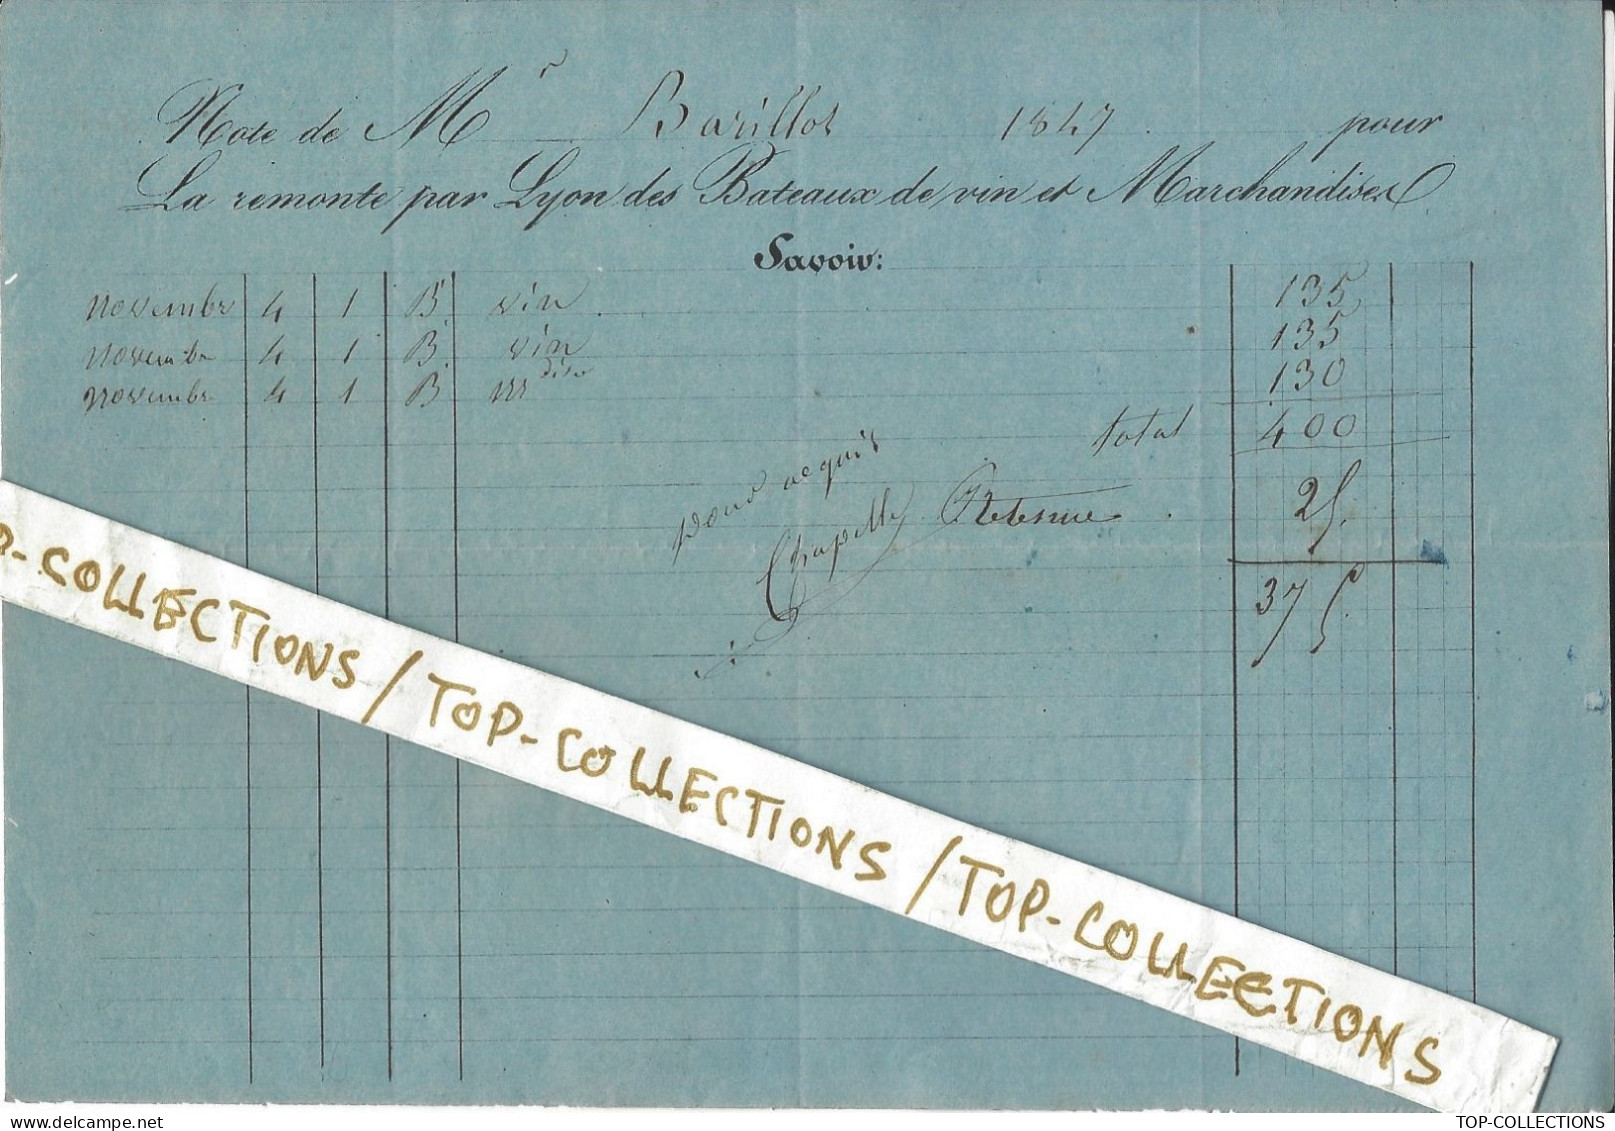 Note de Mr Barillot 1847 pour
La remonte par Lyon des Bateaux de vin et Marchandises
Savoir:
novembre 4 1 B vin 135
novembre 4 1 B vin 135
novembre 4 1 B mdise 130
total 400
pour acquis
Chapelle
Retenue 25
375
P-COLLECTIONS / TOP-COLLECTIONS / TOP-COLLECTIONS
TOP-COLLECTIONS